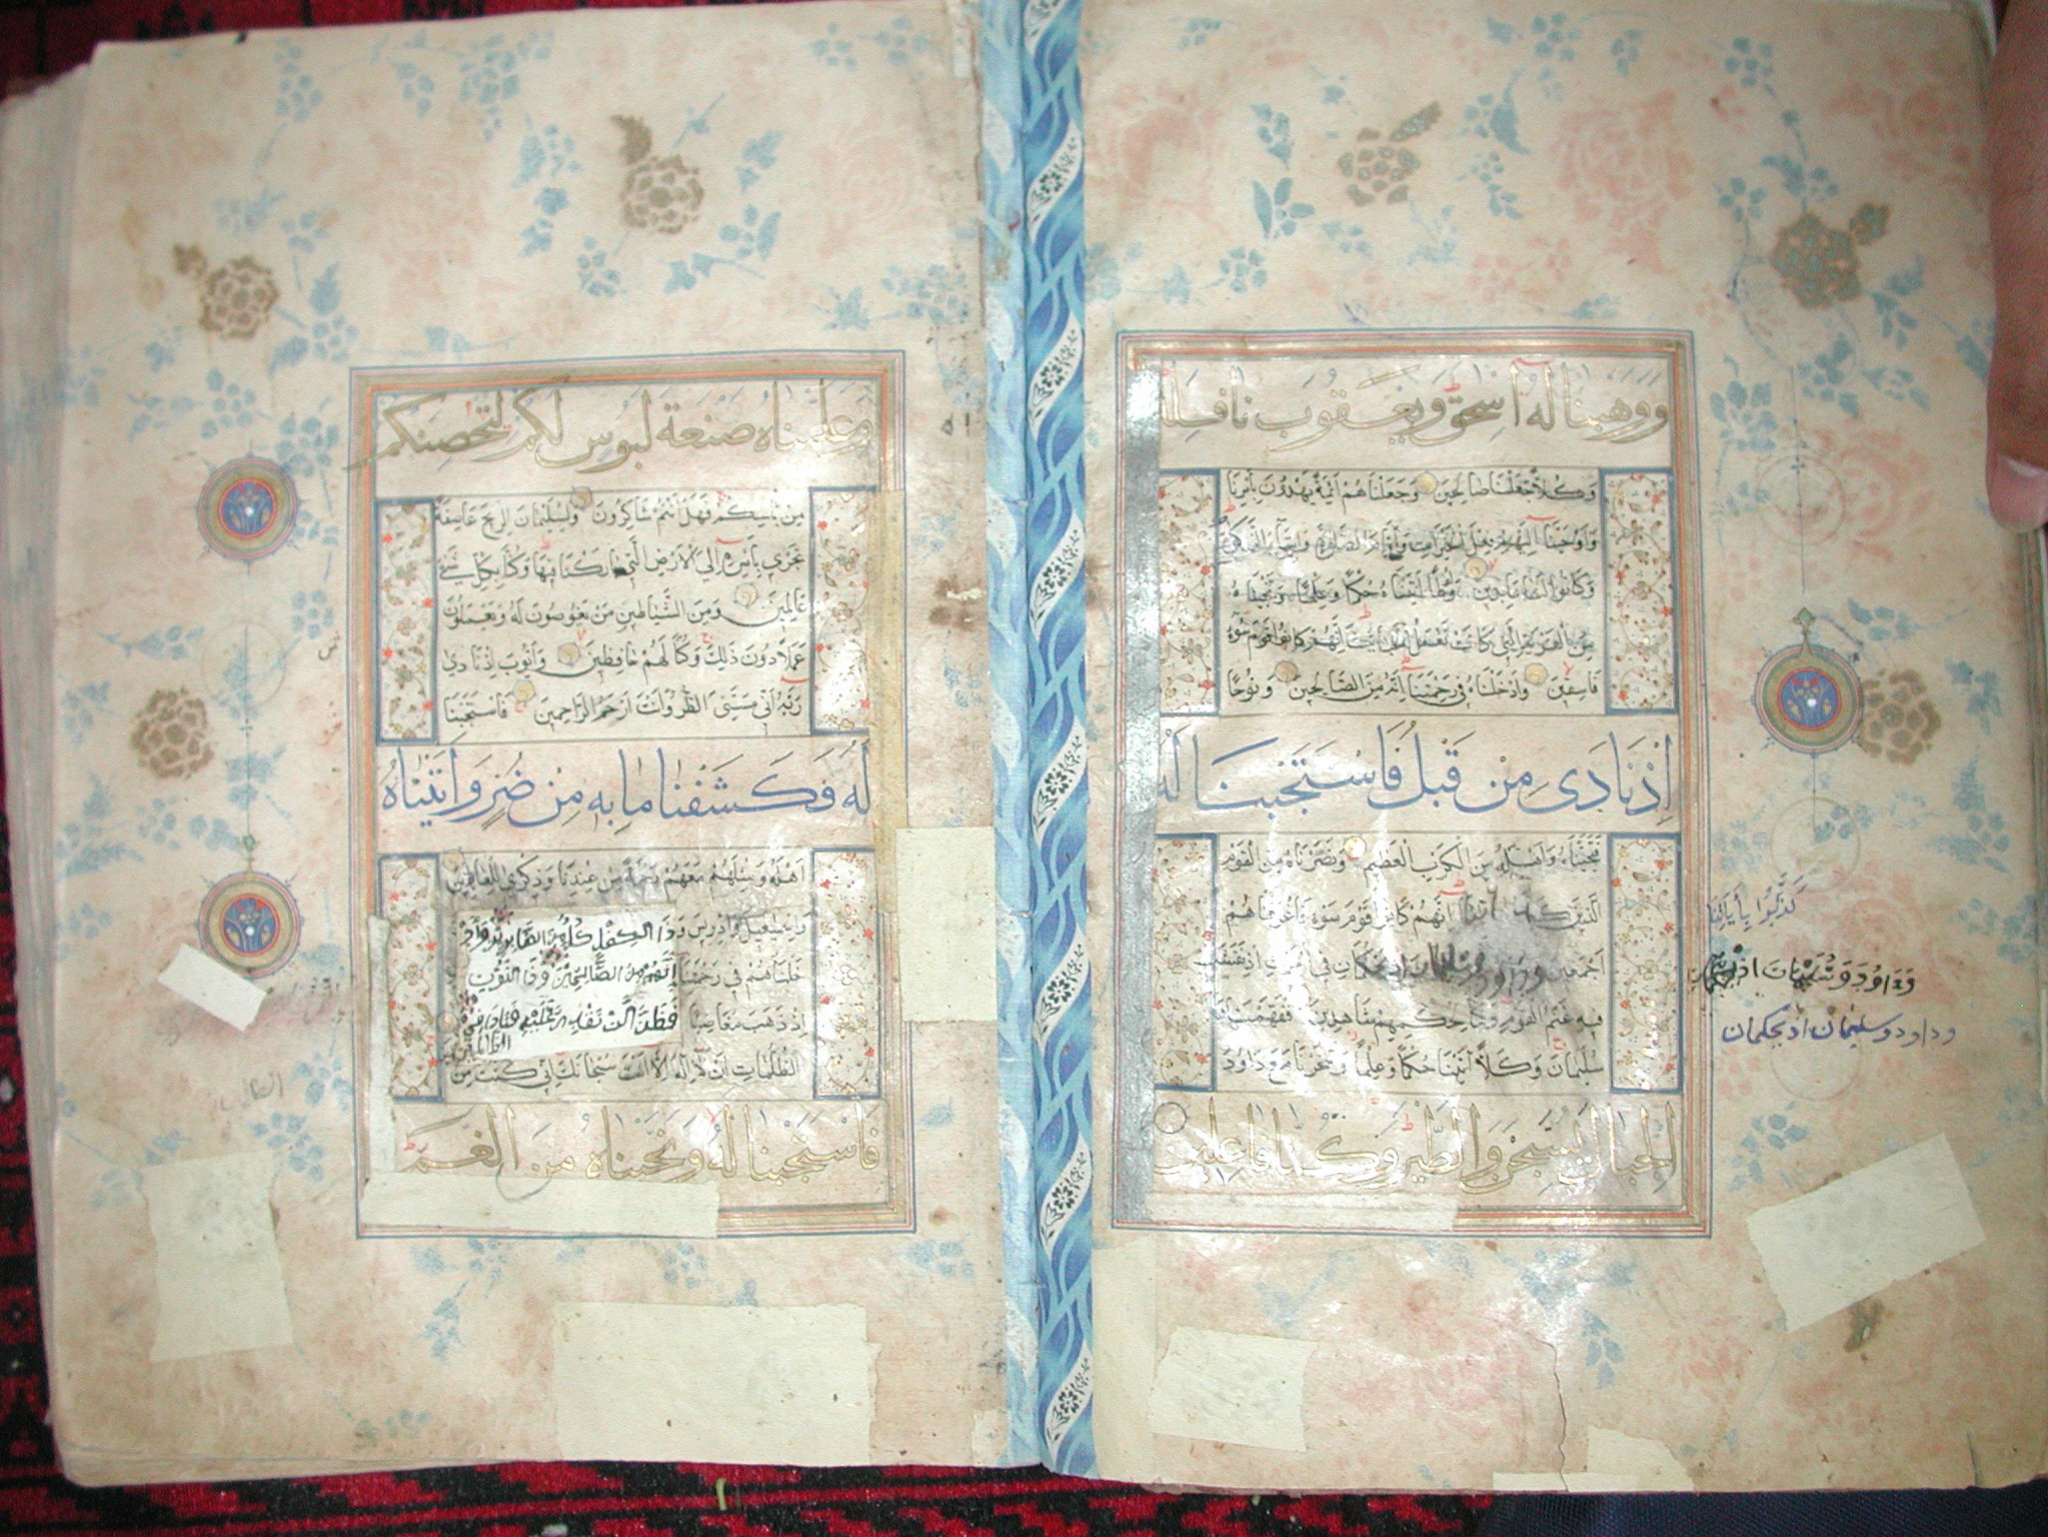 ووهبنا له اسحق ويعقوب نافلة
وَكُلاًّ جَعَلْنَا صَالِحِينَ وَجَعَلْنَاهُمْ اَئِمَّةً يَهْدُونَ بِاَمْرِنَا
وَاَوْحَيْنَا اِلَيْهِمْ فِعْلَ الْخَيْرَاتِ وَاِقَامَ الصَّلٰوةِ وَاِيتَآءَ الزَّكٰوةِ
وَكَانُوا لَنَا عَابِدِينَ وَلُوطًا اٰتَيْنَاهُ حُكْمًا وَعِلْمًا وَنَجَّيْنَاهُ
مِنَ الْقَرْيَةِ الَّتِي كَانَتْ تَعْمَلُ الْخَبَآئِثَ اِنَّهُمْ كَانُوا قَوْمَ سَوْءٍ
فَاسِقِينَ وَاَدْخَلْنَاهُ فِي رَحْمَتِنَا اِنَّهُ مِنَ الصَّالِحِينَ وَنُوحًا
اِذْ نَادَى مِنْ قَبْلُ فَاسْتَجَبْنَا لَهُ
فَنَجَّيْنَاهُ وَاَهْلَهُ مِنَ الْكَرْبِ الْعَظِيمِ وَنَصَرْنَاهُ مِنَ الْقَوْمِ
الَّذِينَ اِنَّهُمْ كَانُوا قَوْمَ سَوْءٍ فَاَغْرَقْنَاهُمْ
اَجْمَعِينَ وداود وسليمان اذ يحكمان فِي الْحَرْثِ اِذْ نَفَشَتْ
فِيهِ غَنَمُ الْقَوْمِ وَكُنَّا لِحُكْمِهِمْ شَاهِدِينَ فَفَهَّمْنَاهَا
سُلَيْمَانَ وَكُلاًّ اٰتَيْنَا حُكْمًا وَعِلْمًا وَسَخَّرْنَا مَعَ دَاوُدَ
الجبال يسبحن والطير وكنا فاعلين
كَذَّبُوا بِأَيَاتِنَا
وَدَاوُدَ وَسُلَيْمَانَ اذ يحكمان
وداود وسليمان اذ يحكمان
وعلمناه صنعة لبوس لكم لتحصنكم
مِنْ بَاْسِكُمْ فَهَلْ اَنْتُمْ شَاكِرُونَ وَلِسُلَيْمَانَ الرِّيحَ عَاصِفَةً
تَجْرِي بِاَمْرِهِ اِلَى الْاَرْضِ الَّتِي بَارَكْنَا فِيهَا وَكُنَّا بِكُلِّ شَيْءٍ
عَالِمِينَ وَمِنَ الشَّيَاطِينِ مَنْ يَغُوصُونَ لَهُ وَيَعْمَلُونَ
عَمَلاً دُونَ ذٰلِكَ وَكُنَّا لَهُمْ حَافِظِينَ وَاَيُّوبَ اِذْ نَادَى
رَبَّهُ اَنِّي مَسَّنِيَ الضُّرُّ وَاَنْتَ اَرْحَمُ الرَّاحِمِينَ فَاسْتَجَبْنَا
لَهُ فَكَشَفْنَا مَا بِهِ مِنْ ضُرٍّ وَاٰتَيْنَاهُ
اَهْلَهُ وَمِثْلَهُمْ مَعَهُمْ رَحْمَةً مِنْ عِنْدِنَا وَذِكْرَى لِلْعَابِدِينَ
وَاِسْمٰعِيلَ وَاِدْرِيسَ وَذَا الْكِفْلِ كُلٌّ مِنَ الصَّابِرِينَ وَاَدْ
خَلْنَاهُمْ فِي رَحْمَتِنَا اِنَّهُمْ مِنَ الصَّالِحِينَ وَذَا النُّونِ
اِذْ ذَهَبَ مُغَاضِبًا فَظَنَّ اَنْ لَنْ نَقْدِرَ عَلَيْهِ فَنَادَى فِي
الظُّلُمَاتِ اَنْ لَا اِلٰهَ اِلَّا اَنْتَ سُبْحَانَكَ اِنِّي كُنْتُ مِنَ
الظالمين
فَاسْتَجَبْنَا لَهُ وَنَجَّيْنَاهُ مِنَ الْغَمِّ